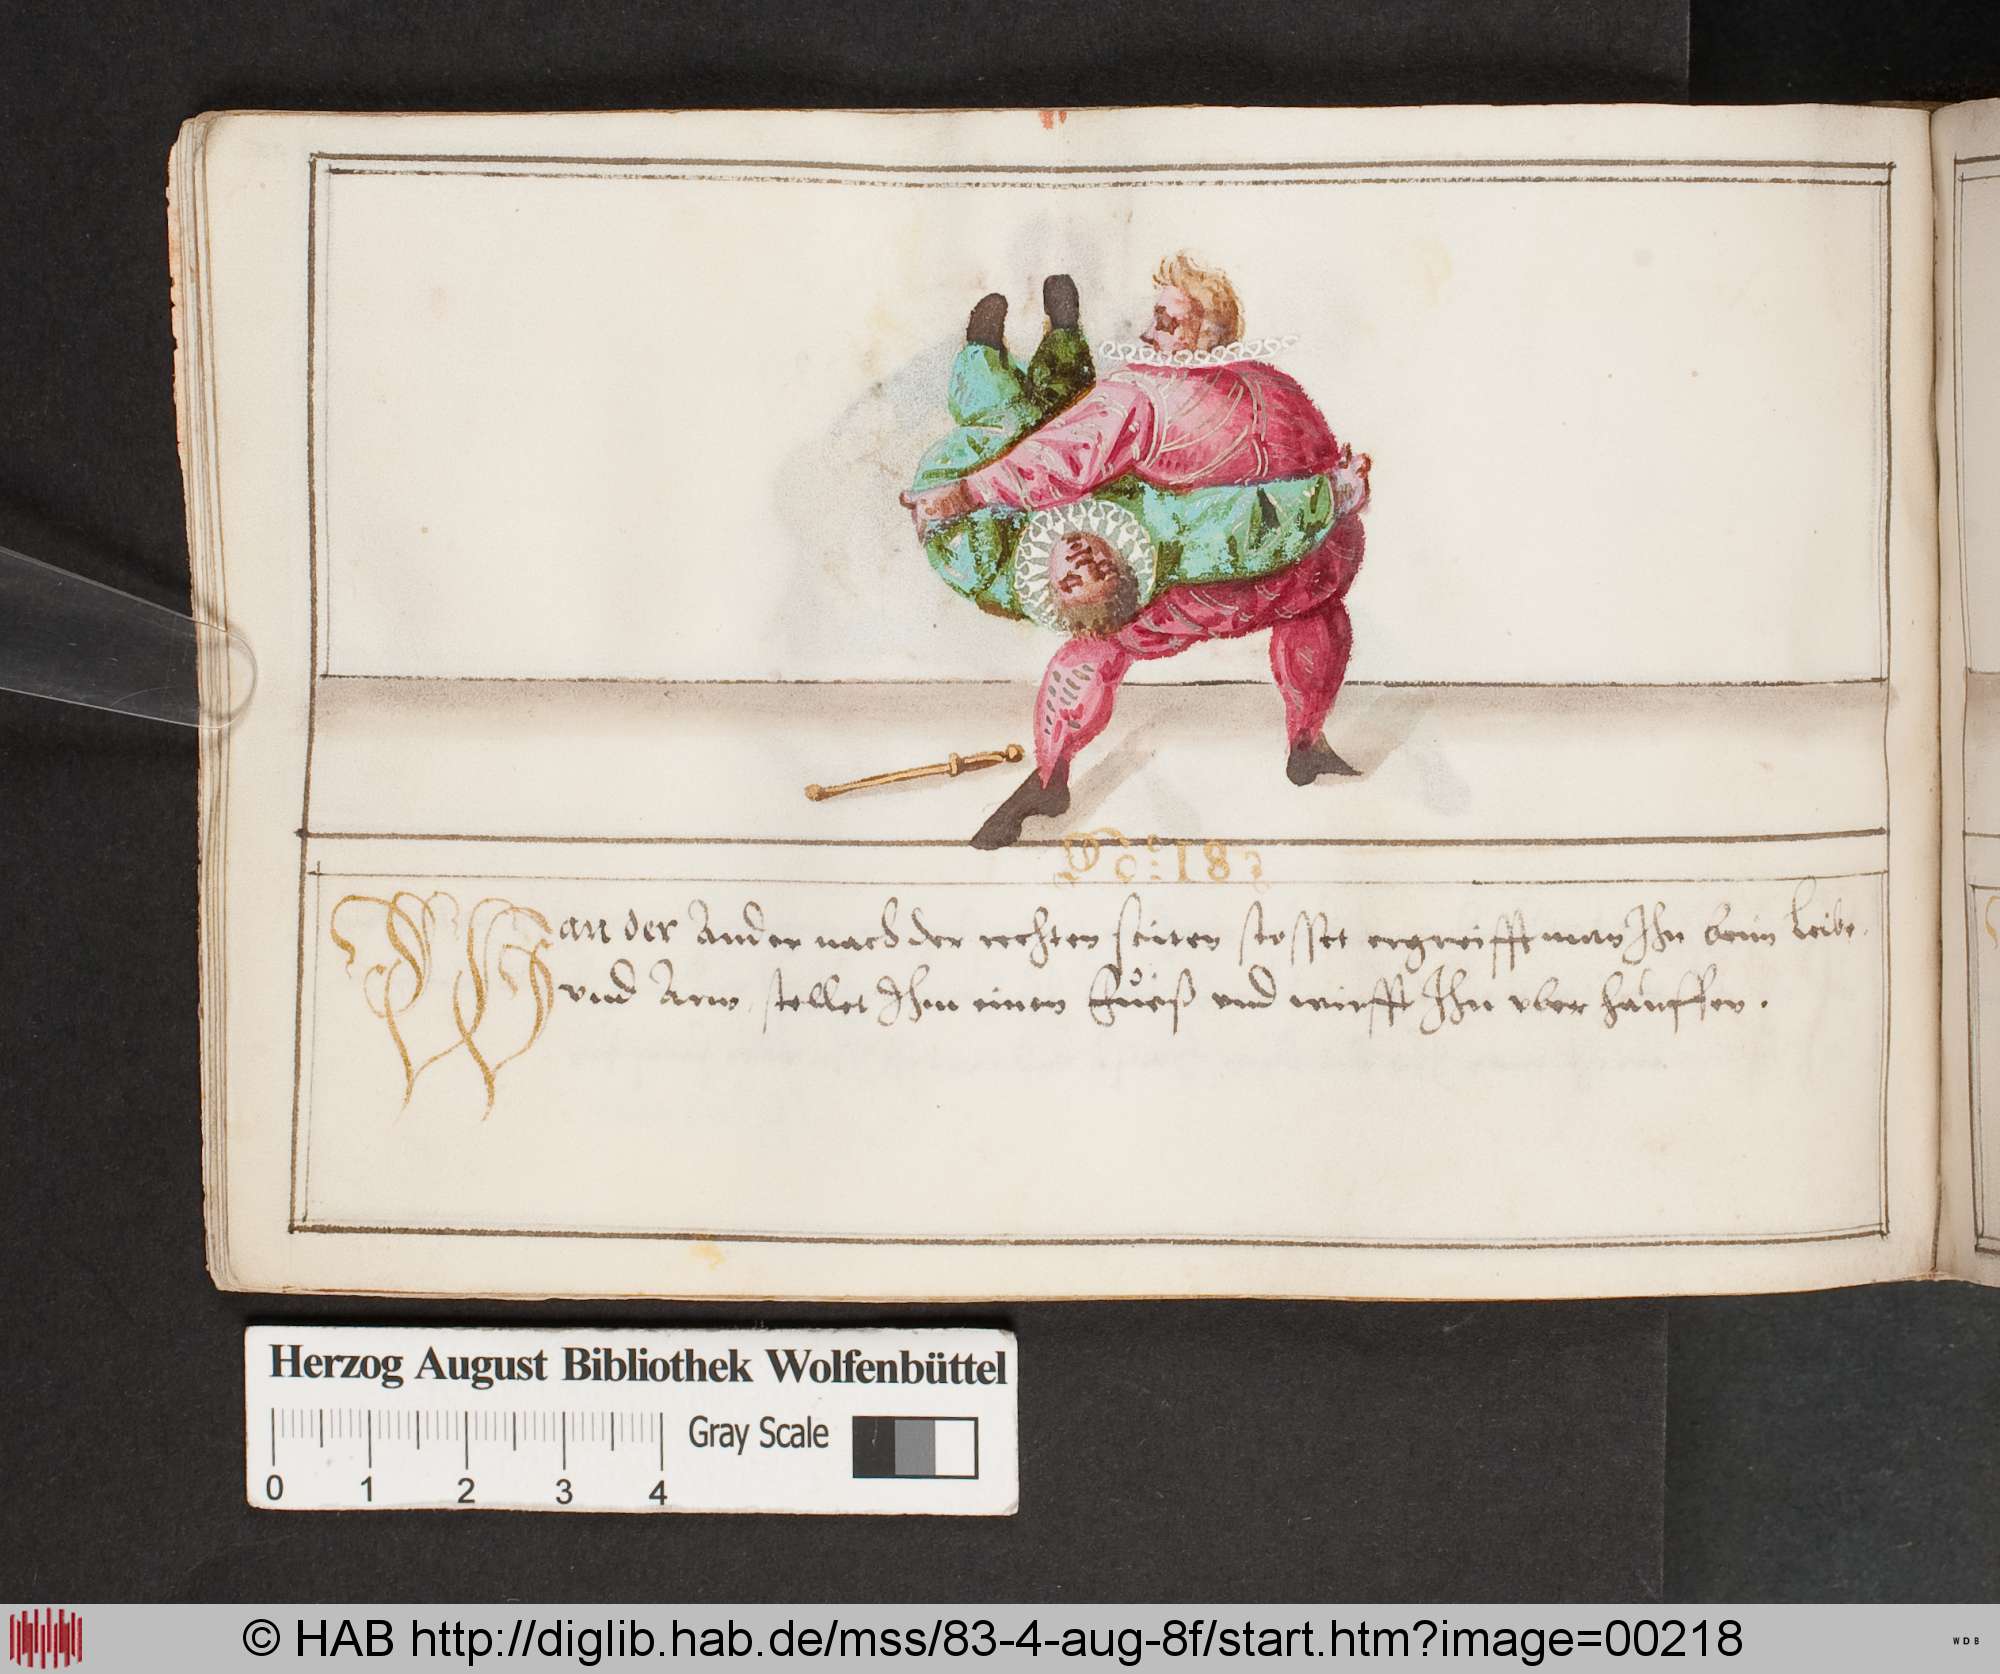 No: 18
Wan der Ander nach der rechten seiten stosset ergreifft man Ihn beim Leibe,
vnd Arm, stellet Ihm einen Fueß vnd wirfft Ihn vber hauffen.
Herzog August Bibliothek Wolfenbüttel
Gray Scale
0 1 2 3 4
© HAB http://diglib.hab.de/mss/83-4-aug-8f/start.htm?image=00218
WDB